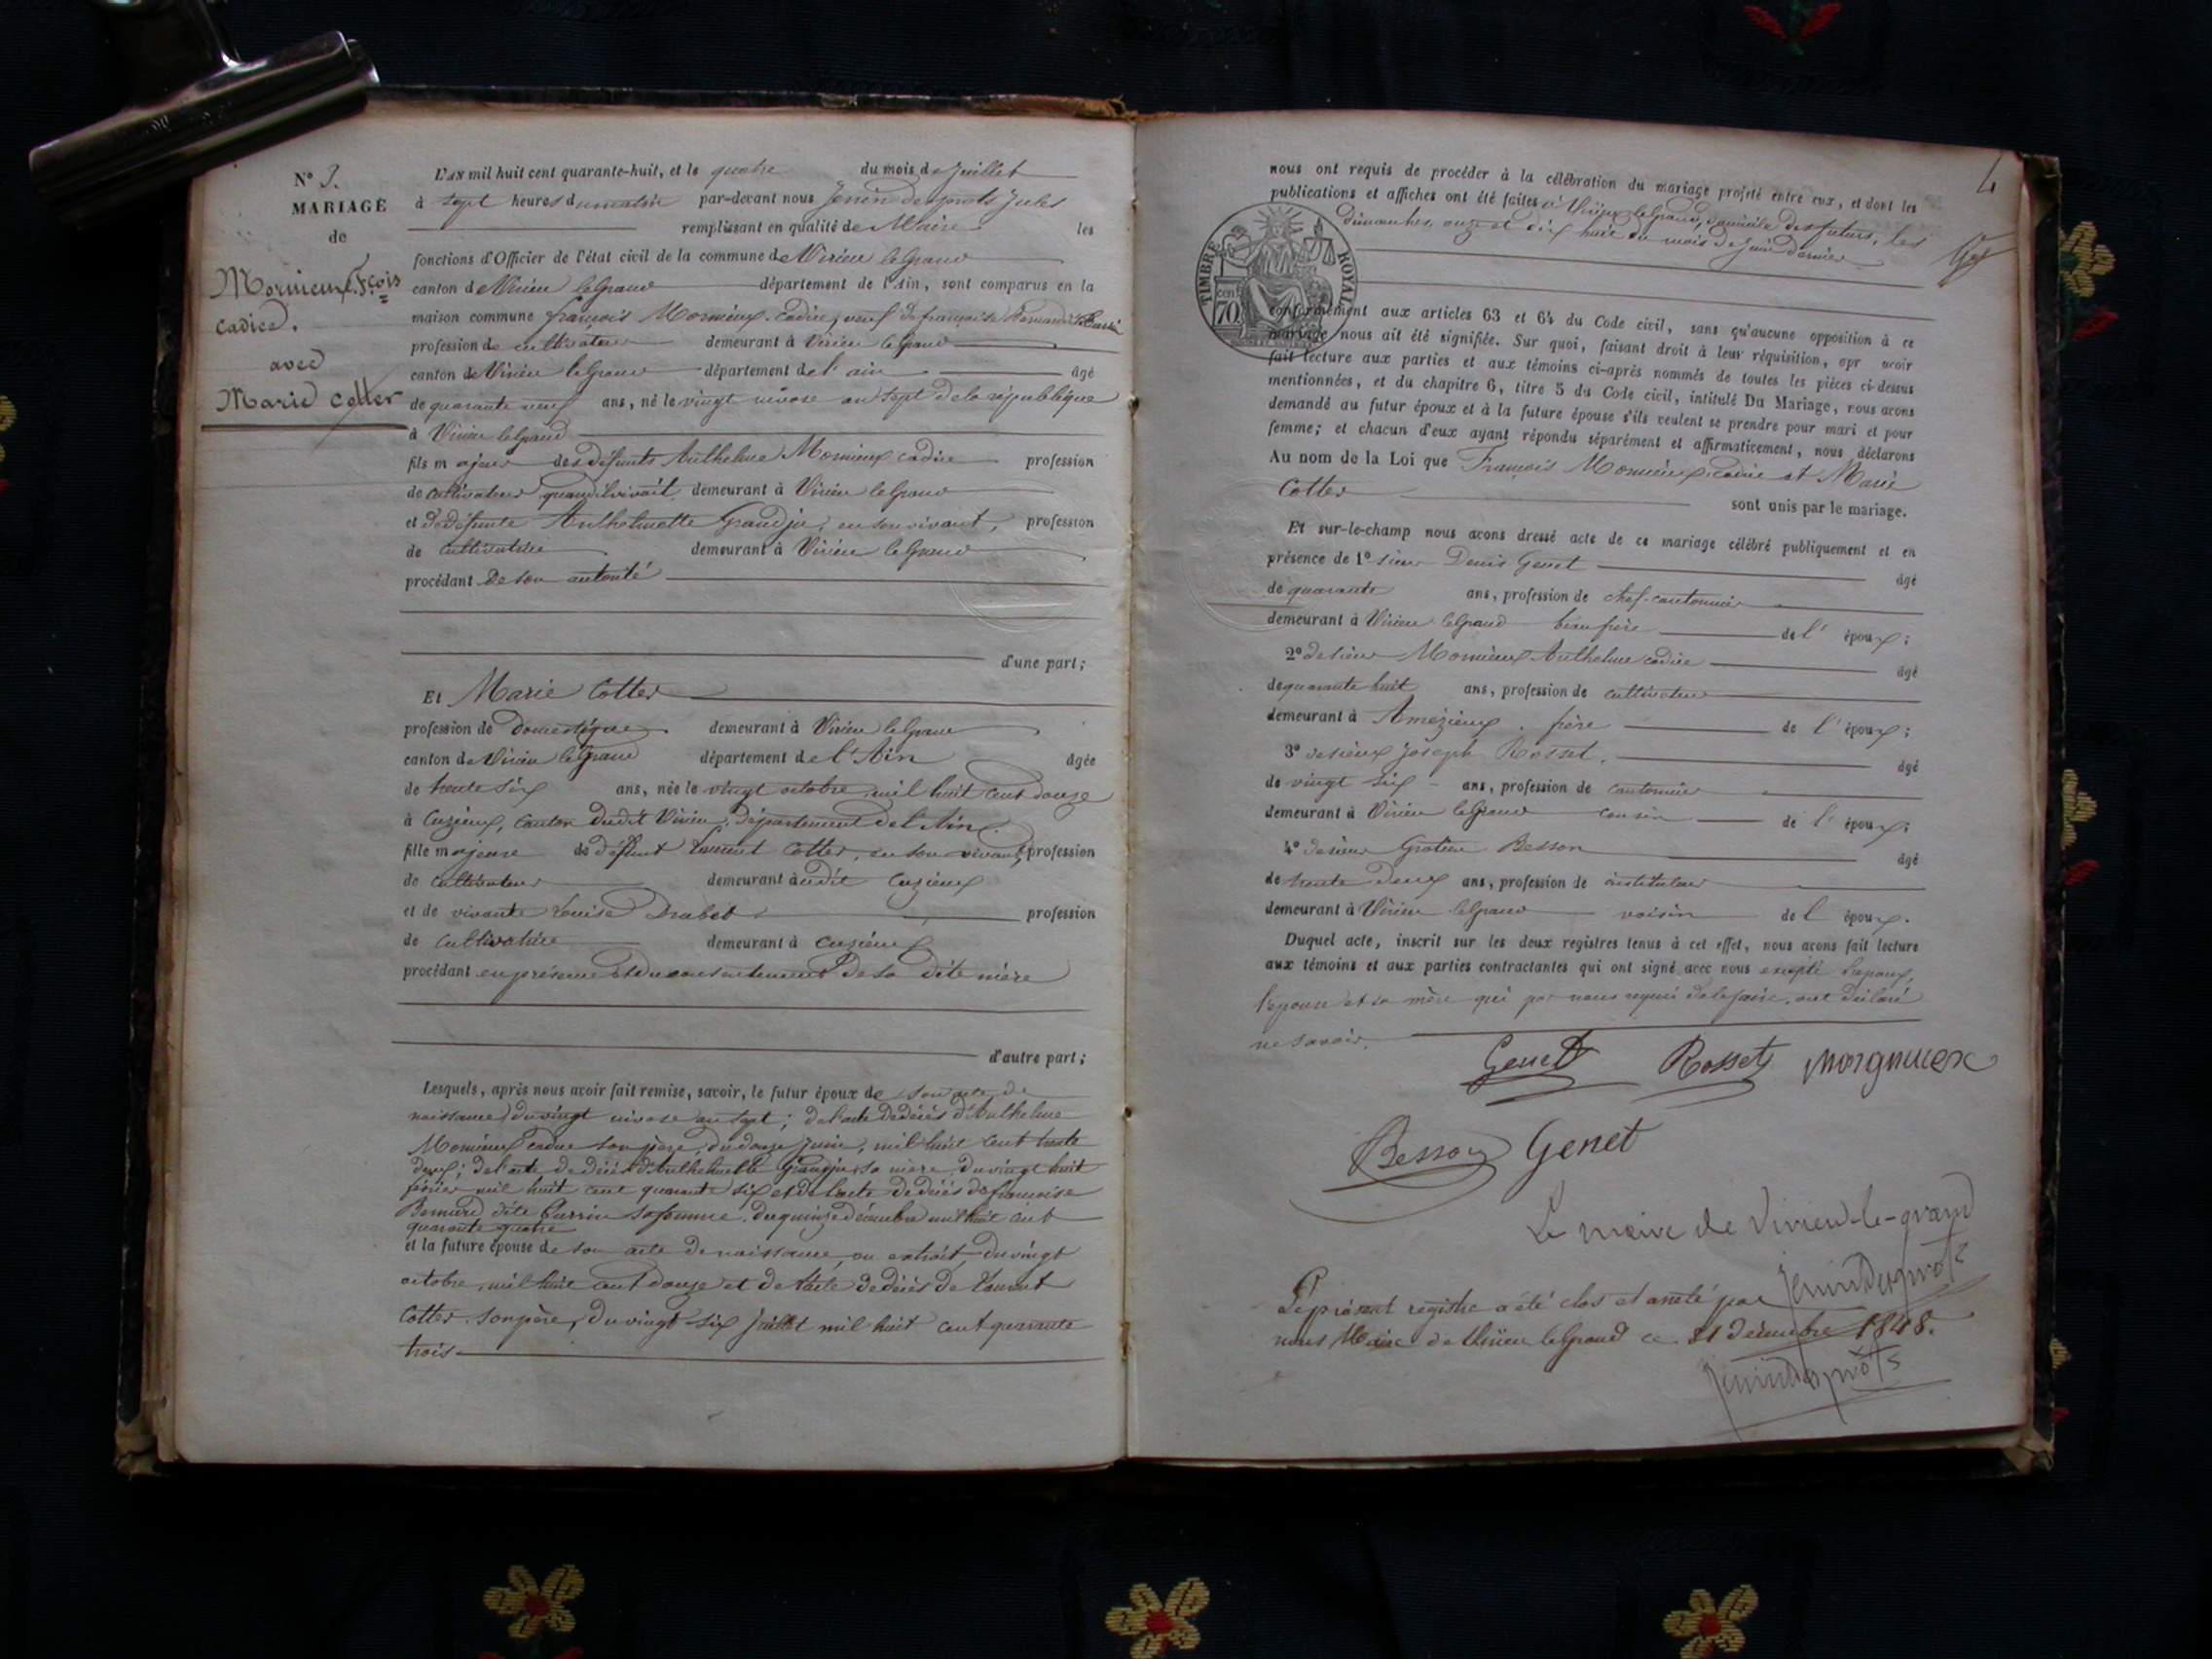 N° 3.
MARIAGE
de
Mornieux Fçois
cadice.
avec
Marie Cotter
L'AN mil huit cent quarante-huit, et le quatre du mois de juillet
à sept heures du matin par-devant nous Jenin desprots Jules
remplissant en qualité de Maire les
fonctions d'Officier de l'état civil de la commune de Virieu le grand
canton de Virieu le grand département de l'Ain, sont comparus en la
maison commune françois Mornieux cadice, veuf de françoise Bernard dite Carrin
profession de cultivateur demeurant à Virieu le grand
canton de Virieu le grand département de l'ain âgé
de quarante neuf ans, né le vingt nivose an sept de la république
à Virieu le grand
fils majeur des défunts Anthelme Mornieux cadice profession
de cultivateur quand il vivait demeurant à Virieu le grand
et de défunte Anthelmette Grandjea, en son vivant, profession
de cultivatrice demeurant à Virieu le grand
procédant de son autorité
d'une part;
Et Marie Cotter
profession de Domestique demeurant à Virieu le grand
canton de Virieu le grand département de l'Ain âgée
de trente six ans, née le vingt octobre mil huit cent douze
à Cuzieux, canton dudit Virieu, département de l'Ain.
fille majeure de défunt Laurent Cotter, en son vivant, profession
de cultivateur demeurant audit Cuzieux
et de vivante Louise Drabet profession
de Cultivatrice demeurant à Cuzieux
procédant en présence et du consentement de sa dite mère
d'autre part;
Lesquels, après nous avoir fait remise, savoir, le futur époux de son acte de
naissance du vingt nivose an sept; de l'acte de décès d'Anthelme
Mornieux cadice son père, du douze juin, mil huit cent trente
deux; de l'acte de décès d'Anthelmette Grandjea sa mère, du vingt huit
février mil huit cent quarante six et de l'acte de décès de françoise
Bernard dite Carrin sa femme, du quinze décembre mil huit cent
quarante quatre
et la future épouse de son acte de naissance, ou extrait, du vingt
octobre, mil huit cent douze et de l'acte de décès de Laurent
Cotter son père, du vingt six juillet mil huit cent quarante
trois
4
nous ont requis de procéder à la célébration du mariage projeté entre eux, et dont les
publications et affiches ont été faites à Virieu le Grand, domicile des futurs, les
dimanches, onze et dix huit du mois de juin dernier
TIMBRE ROYAL
70 cen
conformément aux articles 63 et 64 du Code civil, sans qu'aucune opposition à ce
mariage nous ait été signifiée. Sur quoi, faisant droit à leur réquisition, apr avoir
fait lecture aux parties et aux témoins ci-après nommés de toutes les pièces ci-dessus
mentionnées, et du chapitre 6, titre 5 du Code civil, intitulé Du Mariage, nous avons
demandé au futur époux et à la future épouse s'ils veulent se prendre pour mari et pour
femme; et chacun d'eux ayant répondu séparément et affirmativement, nous déclarons
Au nom de la Loi que François Mornieux cadice et Marie
Cotter sont unis par le mariage.
Et sur-le-champ nous avons dressé acte de ce mariage célébré publiquement et en
présence de 1° sieur Denis Genet âgé
de quarante ans, profession de chef-cantonnier
demeurant à Virieu le Grand beau frère de l'époux;
2° de sieur Mornieux Anthelme cadice âgé
de quarante huit ans, profession de cultivateur
demeurant à Amézieux, frère de l'époux;
3° de sieur Joseph Rosset, âgé
de vingt six ans, profession de cantonnier
demeurant à Virieu le Grand cousin de l'époux;
4° de sieur Gratien Besson âgé
de trente deux ans, profession de instituteur
demeurant à Virieu le Grand voisin de l'époux.
Duquel acte, inscrit sur les deux registres tenus à cet effet, nous avons fait lecture
aux témoins et aux parties contractantes qui ont signé avec nous excepté l'époux,
l'épouse et sa mère qui par nous requis de le faire, ont déclaré
ne savoir.
Genet Rosset morgnieux
Besson Genet
Le maire de Virieu-le-grand
Jenindesprots
Le présent registre a été clos et arrêté par
nous Maire de Virieu le Grand ce 31 décembre 1848.
Jenindesprots